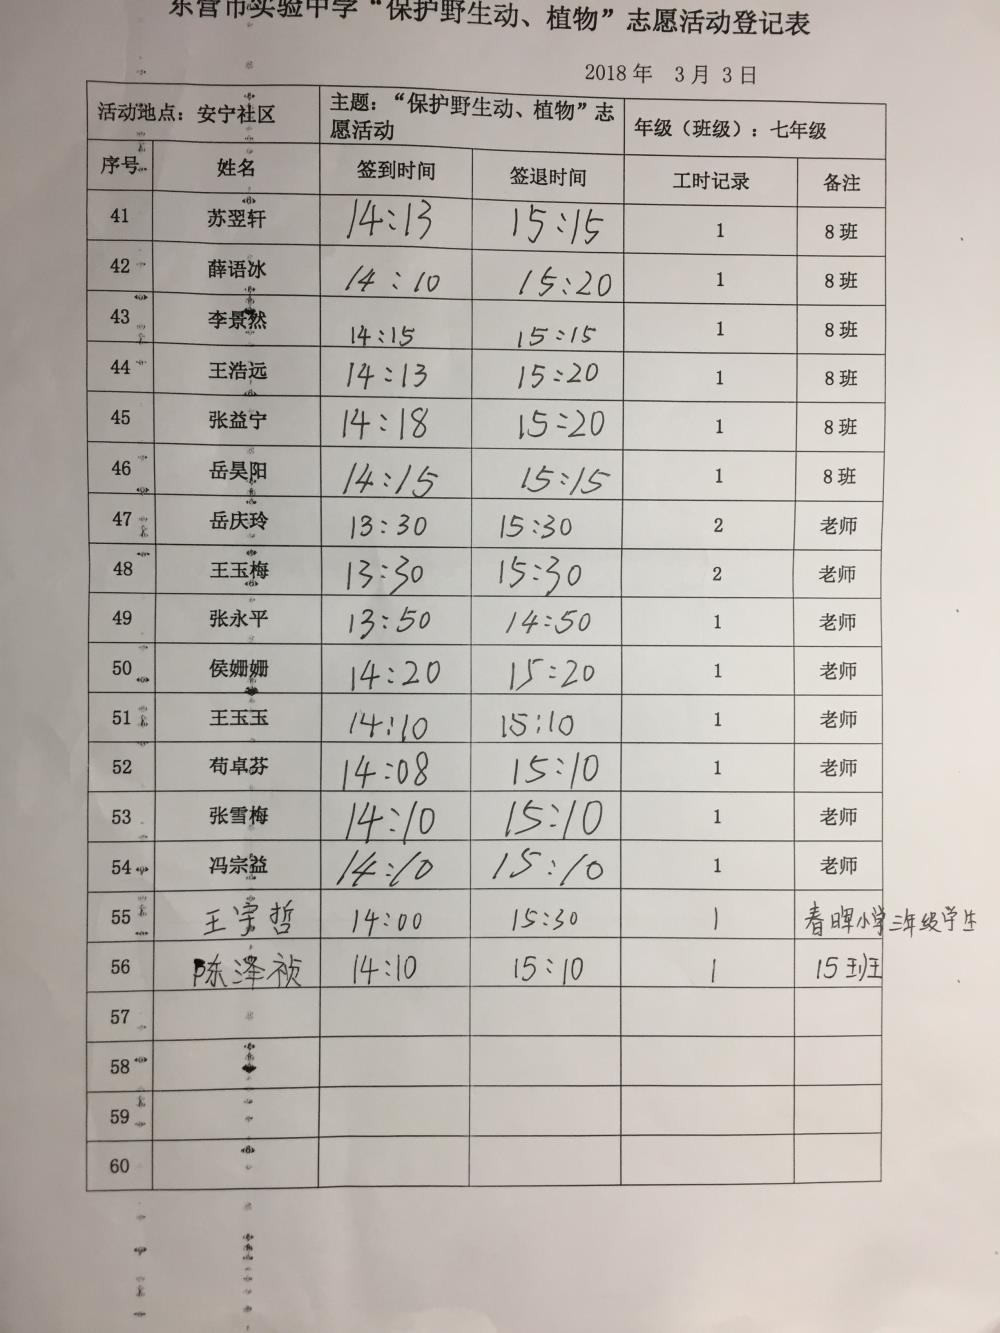 东营市实验中学“保护野生动、植物”志愿活动登记表
2018年 3月 3日
活动地点：安宁社区 主题：“保护野生动、植物”志愿活动 年级（班级）：七年级
序号 姓名 签到时间 签退时间 工时记录 备注
41 苏翌轩 14:13 15:15 1 8班
42 薛语冰 14:10 15:20 1 8班
43 李景然 14:15 15:15 1 8班
44 王浩远 14:13 15:20 1 8班
45 张益宁 14:18 15:20 1 8班
46 岳昊阳 14:15 15:15 1 8班
47 岳庆玲 13:30 15:30 2 老师
48 王玉梅 13:30 15:30 2 老师
49 张永平 13:50 14:50 1 老师
50 侯姗姗 14:20 15:20 1 老师
51 王玉玉 14:10 15:10 1 老师
52 苟卓芬 14:08 15:10 1 老师
53 张雪梅 14:10 15:10 1 老师
54 冯宗益 14:10 15:10 1 老师
55 王宇哲 14:00 15:30 1 春晖小学三年级学生
56 陈泽祯 14:10 15:10 1 15班
57
58
59
60